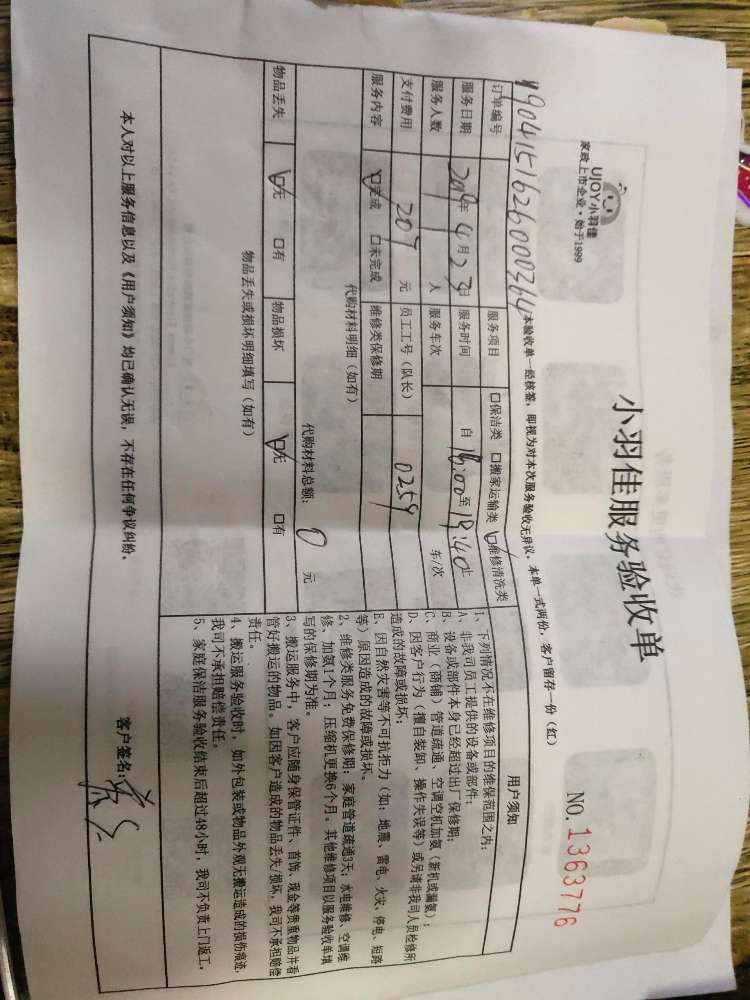 UJOY小羽佳
家政上市企业·始于1999
小羽佳服务验收单
NO. 1363776
本验收单一经核签，即视为对本次服务验收无异议。本单一式两份，客户留存一份（红）
订单编号
1904151626000364
服务项目 口保洁类 口搬家运输类 口维修清洗类
服务日期 2019年 4月 23日 服务时间 自 18:00 至 19:40止
服务人数 人 服务车次 车/次
支付费用 207 元 员工工号（队长） 0259
服务内容 口完成 口未完成 维修类保修期
代购材料明细（如有）
代购材料总额： 0 元
物品丢失 口无 口有 物品损坏 口无 口有
物品丢失或损坏明细填写（如有）
用户须知
1、下列情况不在维修项目的维保范围之内：
A、非我司员工提供的设备或部件；
B、设备或部件本身已经超过出厂保修期；
C、商业（商铺）管道疏通、空调空机加氨（新机或漏氨）；
D、因客户行为（擅自装卸、操作失误等）或另请非我司人员检修所
造成的故障或损坏；
E、因自然灾害等不可抗拒力（如：地震、雷电、火灾、停电、短路
等）原因造成的故障或损坏。
2、维修类服务免费保修期：家庭管道疏通3天；水电维修、空调维
修、加氨1个月；压缩机更换6个月。其他维修项目以服务验收单填
写的保修期为准。
3、搬运服务中，客户应随身保管证件、首饰、现金等贵重物品并看
管好搬运的物品。如因客户造成的物品丢失/损坏，我司不承担赔偿
责任。
4、搬运服务验收时，如外包装或物品外观无搬运造成的损伤痕迹，
我司不承担赔偿责任。
5、家庭保洁服务验收结束后超过48小时，我司不负责上门返工。
本人对以上服务信息以及《用户须知》均已确认无误，不存在任何争议纠纷。
客户签名：